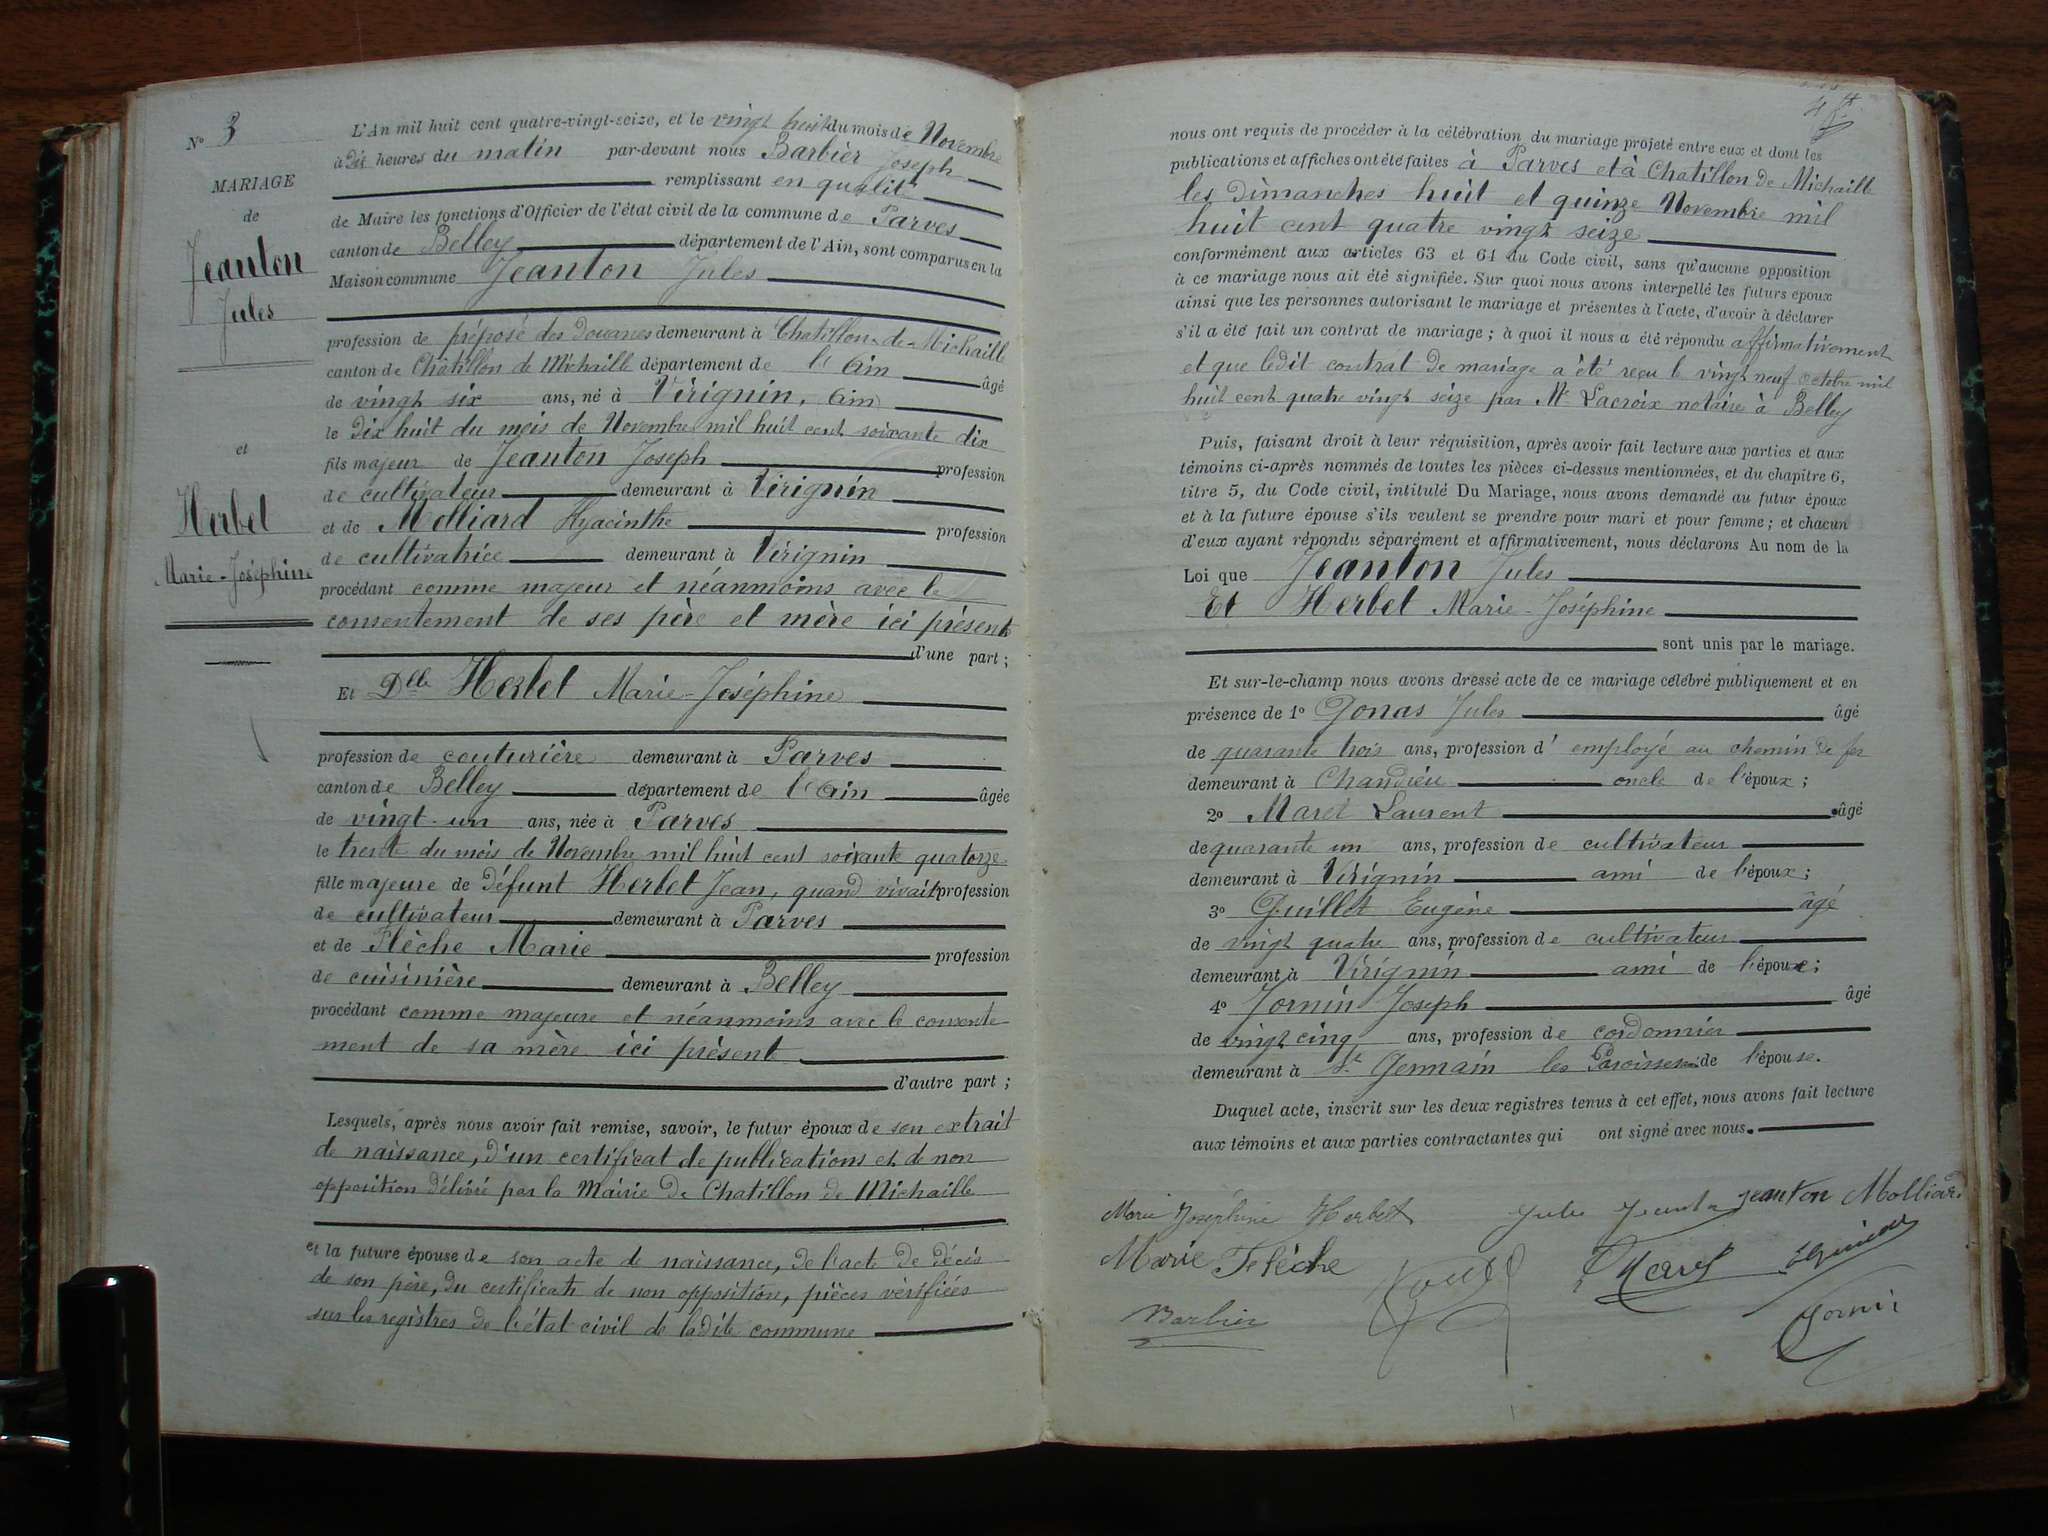 N° 3
MARIAGE
de
Jeanton
Jules
et
Herbet
Marie-Joséphine
L'An mil huit cent quatre-vingt-seize, et le vingt huit du mois de Novembre
à dix heures du matin par-devant nous Barbier Joseph
remplissant en qualité
de Maire les fonctions d'Officier de l'état civil de la commune de Parves
canton de Belley département de l'Ain, sont comparus en la
Maison commune Jeanton Jules
profession de préposé des Douanes demeurant à Chatillon-de-Michaille
canton de Châtillon de Michaille département de l'Ain âgé
de vingt six ans, né à Virignin, Ain
le Dix huit du mois de Novembre mil huit cent soixante dix
fils majeur de Jeanton Joseph profession
de cultivateur demeurant à Virignin
et de Molliard Hyacinthe profession
de cultivatrice demeurant à Virignin
procédant comme majeur et néanmoins avec le
consentement de ses père et mère ici présents
d'une part ;
Et Dlle Herbet Marie-Joséphine
profession de couturière demeurant à Parves
canton de Belley département de l'Ain âgée
de vingt-un ans, née à Parves
le trente du mois de Novembre mil huit cent soixante quatorze
fille majeure de défunt Herbet Jean, quand vivait profession
de cultivateur demeurant à Parves
et de Flèche Marie profession
de cuisinière demeurant à Belley
procédant comme majeure et néanmoins avec le consente
ment de sa mère ici présent
d'autre part ;
Lesquels, après nous avoir fait remise, savoir, le futur époux de son extrait
de naissance, d'un certificat de publications et de non
opposition délivré par la Mairie de Chatillon de Michaille
et la future épouse de son acte de naissance, de l'acte de décès
de son père, du certificat de non opposition, pièces vérifiées
sur les registres de l'état civil de ladite commune
nous ont requis de procéder à la célébration du mariage projeté entre eux et dont les
publications et affiches ont été faites à Parves et à Chatillon de Michaille
les Dimanches huit et quinze Novembre mil
huit cent quatre vingt seize
conformément aux articles 63 et 64 du Code civil, sans qu'aucune opposition
à ce mariage nous ait été signifiée. Sur quoi nous avons interpellé les futurs époux
ainsi que les personnes autorisant le mariage et présentes à l'acte, d'avoir à déclarer
s'il a été fait un contrat de mariage ; à quoi il nous a été répondu affirmativement
et que ledit contrat de mariage a été reçu le vingt neuf octobre mil
huit cent quatre vingt seize par Me Lacroix notaire à Belley
Puis, faisant droit à leur réquisition, après avoir fait lecture aux parties et aux
témoins ci-après nommés de toutes les pièces ci-dessus mentionnées, et du chapitre 6,
titre 5, du Code civil, intitulé Du Mariage, nous avons demandé au futur époux
et à la future épouse s'ils veulent se prendre pour mari et pour femme ; et chacun
d'eux ayant répondu séparément et affirmativement, nous déclarons Au nom de la
Loi que Jeanton Jules
Et Herbet Marie-Joséphine
sont unis par le mariage.
Et sur-le-champ nous avons dressé acte de ce mariage célébré publiquement et en
présence de 1° Gonas Jules âgé
de quarante trois ans, profession d' employé au chemin de fer
demeurant à Chandieu oncle de l'époux ;
2° Maret Laurent âgé
de quarante un ans, profession de cultivateur
demeurant à Virignin ami de l'époux ;
3° Quillet Eugène âgé
de vingt quatre ans, profession de cultivateur
demeurant à Virignin ami de l'époux ;
4° Jornin Joseph âgé
de vingt cinq ans, profession de cordonnier
demeurant à St Germain les Paroisses de l'épouse.
Duquel acte, inscrit sur les deux registres tenus à cet effet, nous avons fait lecture
aux témoins et aux parties contractantes qui ont signé avec nous.
Marie Joséphine Herbet Jules Jeanton Jeanton Molliard
Marie Fléche Maret
Barbier Jornin